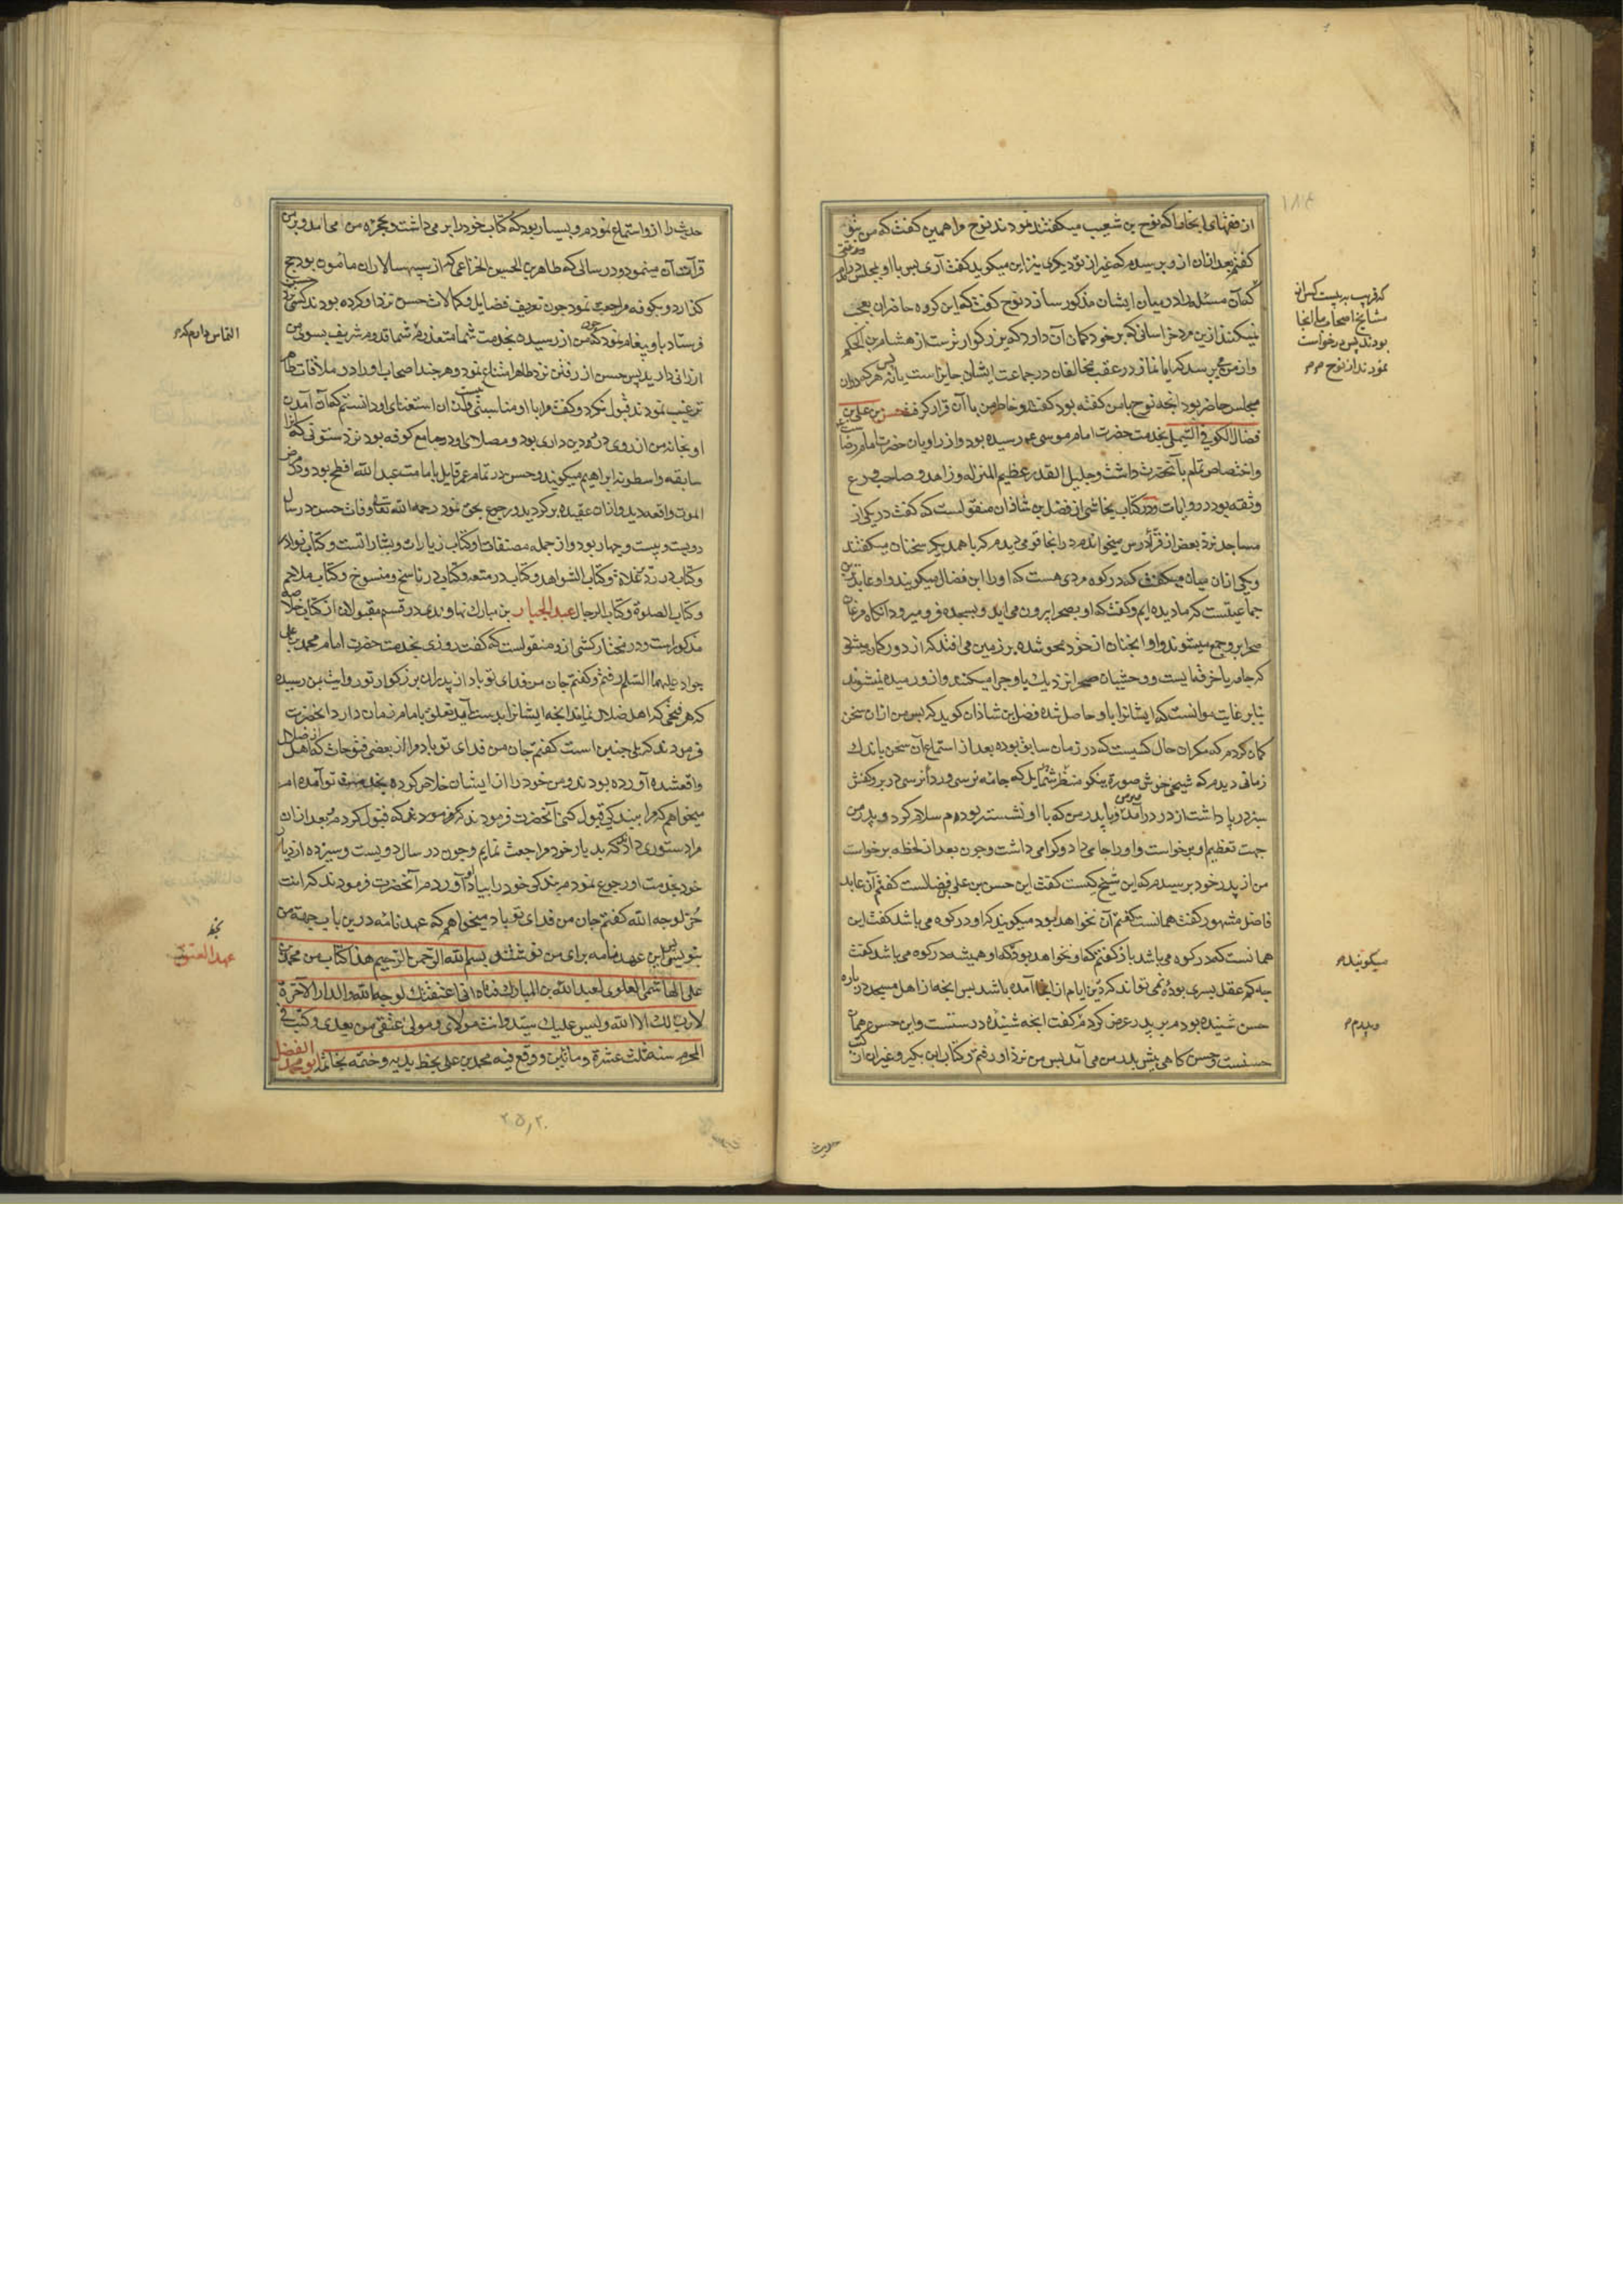 از فقهای انجا ما که نوح بن شعیب میکفتند نمودند نوح را همین کفت که من بتو
کفتم بعد ازان ازو پرسیدم که غیر از تو دیکری نیز این میکوید کفت آری پس با او بمجلس درآمدم
که آن مسئله را در میان ایشان مذکور سازد نوح کفت که این کروه حاضران تعجب
نمیکنند ازین مرد خراسانی که بر خود کمان آن دارد که بزرکوارترست از هشام بن الحکم
و از من می پرسد که ایا نماز در عقب مخالفان در جماعت ایشان جایز است یا نه پس هر که دران
مجلس حاضر بود انچه نوح با من کفته بود کفتند و خاطر من با آن قرار کرفت حسن بن علی بن
فضال الکوفی التیملی بخدمت حضرت امام موسی ع رسیده بود و از راویان حضرت امام رضا
و اختصاص تمام بآنحضرت داشت و جلیل القدر عظیم المنزله و زاهد و صاحب ورع
و ثقه بود در روایات و در کتاب نجاشی از فضل بن شاذان منقولست که کفت در یکی از
مساجد نزد بعض از قرّا درس میخواندم در انجا قومی دیدم که با همدیکر سخنان میکفتند
و یکی ازان میان میکفت که در کوه مردی هست که او را ابن فضال میکویند و او عابدترین
جماعتیست که ما دیده ایم و کفت که او بصحرا بیرون می اید و بسجده فرو میرود انکاه مرغان
صحرا برو جمع میشوند و او انچنان از خود محو شده بر زمین می افتد که از دور کمان میشود
که جامه یا خرقه ایست و وحشیان صحرا نزدیک باو چرا میکنند و ازو رمیده نیشوند
بنابر غایت موانست که ایشانرا باو حاصل شده فضل بن شاذان کوید که پس من ازان سخن
کمان کردم که مکر ان حال کسیست که در زمان سابق بوده بعد از استماع آن سخن باندک
زمانی دیدم که شیخی خوش صورة نیکو منظر شمایل که جامه نرسی و ردا نرسی در بر و کفش
سبز در پا داشت از در درآمد و با پدر من که با او نشسته بودم سلام کرد و پدر من
جهت تعظیم او برخواست و او را جا می داد و کرامی داشت و چون بعد از لحظه برخواست
من از پدر خود پرسیدم که این شیخ کیست کفت این حسن بن علی فضالست کفتم آن عابد
فاضل مشهور کفت همانست کفتم آن نخواهد بود میکویند که او در کوه می باشد کفت این
همانست که در کوه می باشد باز کفتم که او نخواهد بود که او همیشه در کوه می باشد کفت
چه کم عقل پسری بوده نمی تواند که درین ایام از انجا آمده باشد پس انچه از اهل مسجد در باره
حسن شنیده بودم بر پدر عرض کردم کفت انچه شنیده درستست و این حسن همان
حسنست و حسن کاهی پیش پدر من می آمد پس من نزد او رفتم و کتاب ابن بکیر و غیر ان از کتب
که قریب به بیست کس از
مشایخ اصحاب ما انجا
بودند پس درخواست
نمودند از نوح
میکوئید
حدیث
حدیث را ازو استماع نمودم و بسیار بود که کتاب خود را بر می داشت و بحجره من می امد و بر من
قرآت آن مینمود و در سالی که طاهر بن الحسین الخزاعی که از سپهسالاران مامون بود حج
کذارد و بکوفه مراجعت نمود چون تعریف فضایل و کمالات حسن نزد او کرده بودند کسی نزد حسن
فرستاد باو پیغام نمود که چون من از رسیدن بخدمت شما متعذرم شما قدوم شریف بسوی من
ارزانی دارید پس حسن از رفتن نزد طاهر امتناع نمود و هر چند اصحاب او را در ملاقات طاهر
ترغیب نمودند قبول نکرد و کفت مرا با او مناسبتی نیست و من ازان استغنای او دانستم که آن آمدن
او بخانه من از روی دین داری بود و مصلای او در جامع کوفه بود نزد ستونی که انرا
سابقه و اسطوانه ابراهیم میکویند و حسن در تمام عمر قایل بامامت عبد الله افطح بود و در مرض
الموت واقعه دید و ازان عقیده برکردید و رجوع بحق نمود رحمه الله تعالی و وفات حسن در سال
دویست و بیست و چهار بود و از جمله مصنفات او کتاب زیارات و بشاراتست و کتاب نوادر
و کتاب در ردّ غلاة و کتاب الشواهد و کتاب در متعه و کتاب در ناسخ و منسوخ و کتاب ملاحم
و کتاب الصلوة و کتاب الرجال عبد الجبار بن مبارک نهاوندی در قسم مقبولان از کتاب خلاصه
مذکور است و در مختار کشی ازو منقولست که کفت روزی بخدمت حضرت امام محمد بن علی
جواد علیهما السلم رفتم و کفتم جان من فدای تو باد از پدران بزرکوار تو روایت بمن رسیده
که هر فتحی که اهل ضلال نمایند انچه ایشانرا بدست آمد تعلق بامام زمان دارد انحضرت
فرمودند که بلی چنین است کفتم جان من فدای تو باد مرا از بعضی فتوحات که از اهل ضلال
واقعشده آورده بودند و من خود را از ایشان خلاص کرده بخدمت تو آمده ام
میخواهم که مرا ببندکی قبول کنی آنحضرت فرمودند که قبول کردم بعد ازان
مرا دستوری داد که بدیار خود مراجعت نمایم و چون در سال دویست و سیزده از دیار
خود بخدمت او رجوع نمودم بندکی خود را بیاد او آوردم آنحضرت فرمودند که انت
حُرّ لوجه الله کفتم جان من فدای تو باد میخواهم که عهدنامه درین باب جهة من
بنویسی پس این عهدنامه برای من نوشتند بسم الله الرحمن الرحیم هذا کتاب من محمد بن
علی الهاشمی العلوی لعبد الله بن المبارک فتاه انی اعتقتک لوجه الله و الدار الاخرة
لا رب لک الا الله و لیس علیک سیّد و انت مولای و مولی عقبی من بعدی و کتب فی
المحرم سنه ثلث عشرة و مائتین و وقع فیه محمد بن علی بخط یدیه و ختمه بخاتمه ابو محمد الفضل
التماس دارم که
بخط
عهد العتق